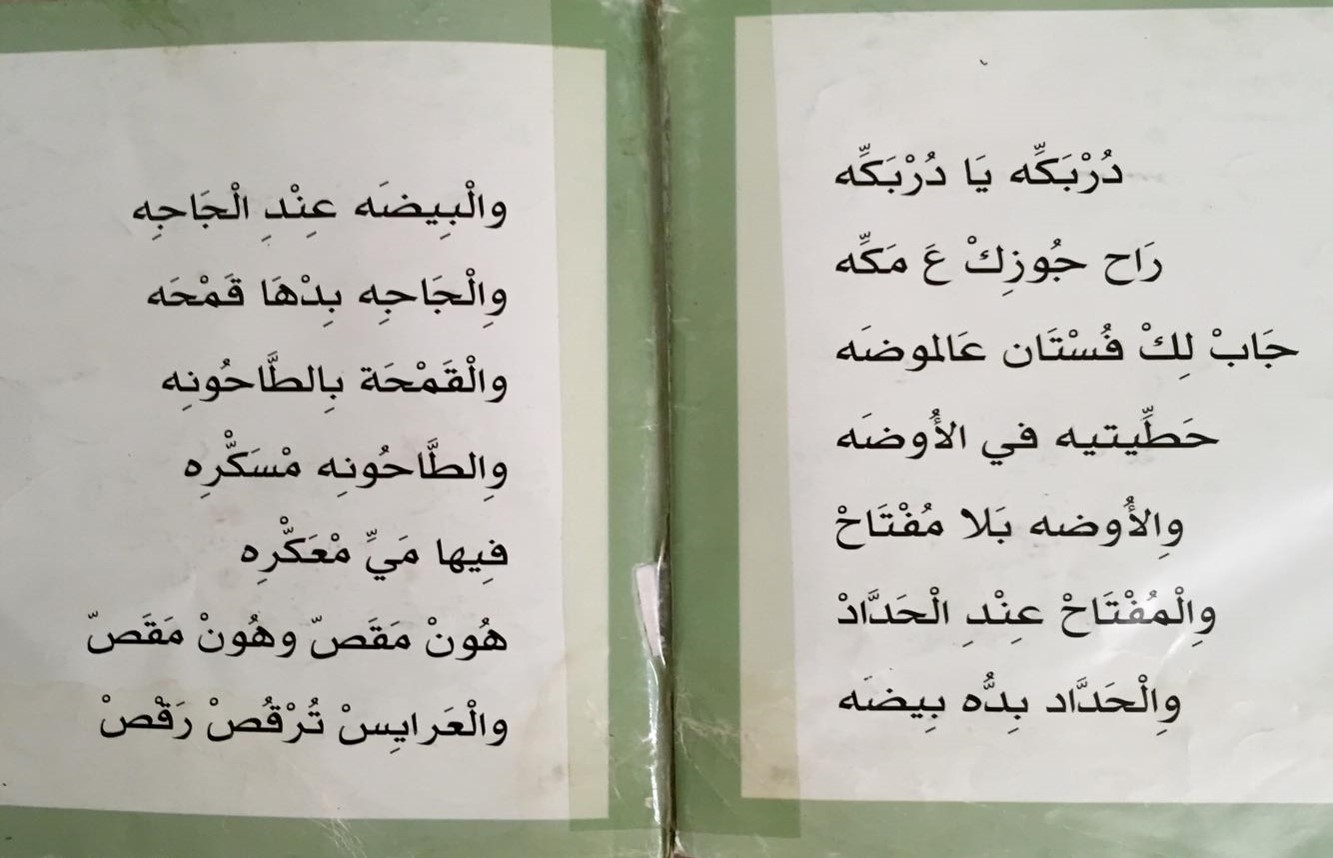 دُرْبَكِّه يَا دُرْبَكِّه
رَاح جُوزِكْ عَ مَكِّه
جَابْ لِكْ فُسْتَان عَالموضَه
حَطِّيتيه في الأُوضَه
وِالأُوضه بَلا مُفْتَاحْ
وِالْمُفْتَاحْ عِنْدِ الْحَدَّادْ
وِالْحَدَّاد بِدُّه بِيضَه
والْبِيضَه عِنْدِ الْجَاجِه
وِالْجَاجِه بِدْهَا قَمْحَه
والْقَمْحَة بِالطَّاحُونِه
وِالطَّاحُونِه مْسَكّْرِه
فِيها مَيِّ مْعَكّْرِه
هُونْ مَقَصّ وهُونْ مَقَصّ
والْعَرايِسْ تُرْقُصْ رَقْصْ